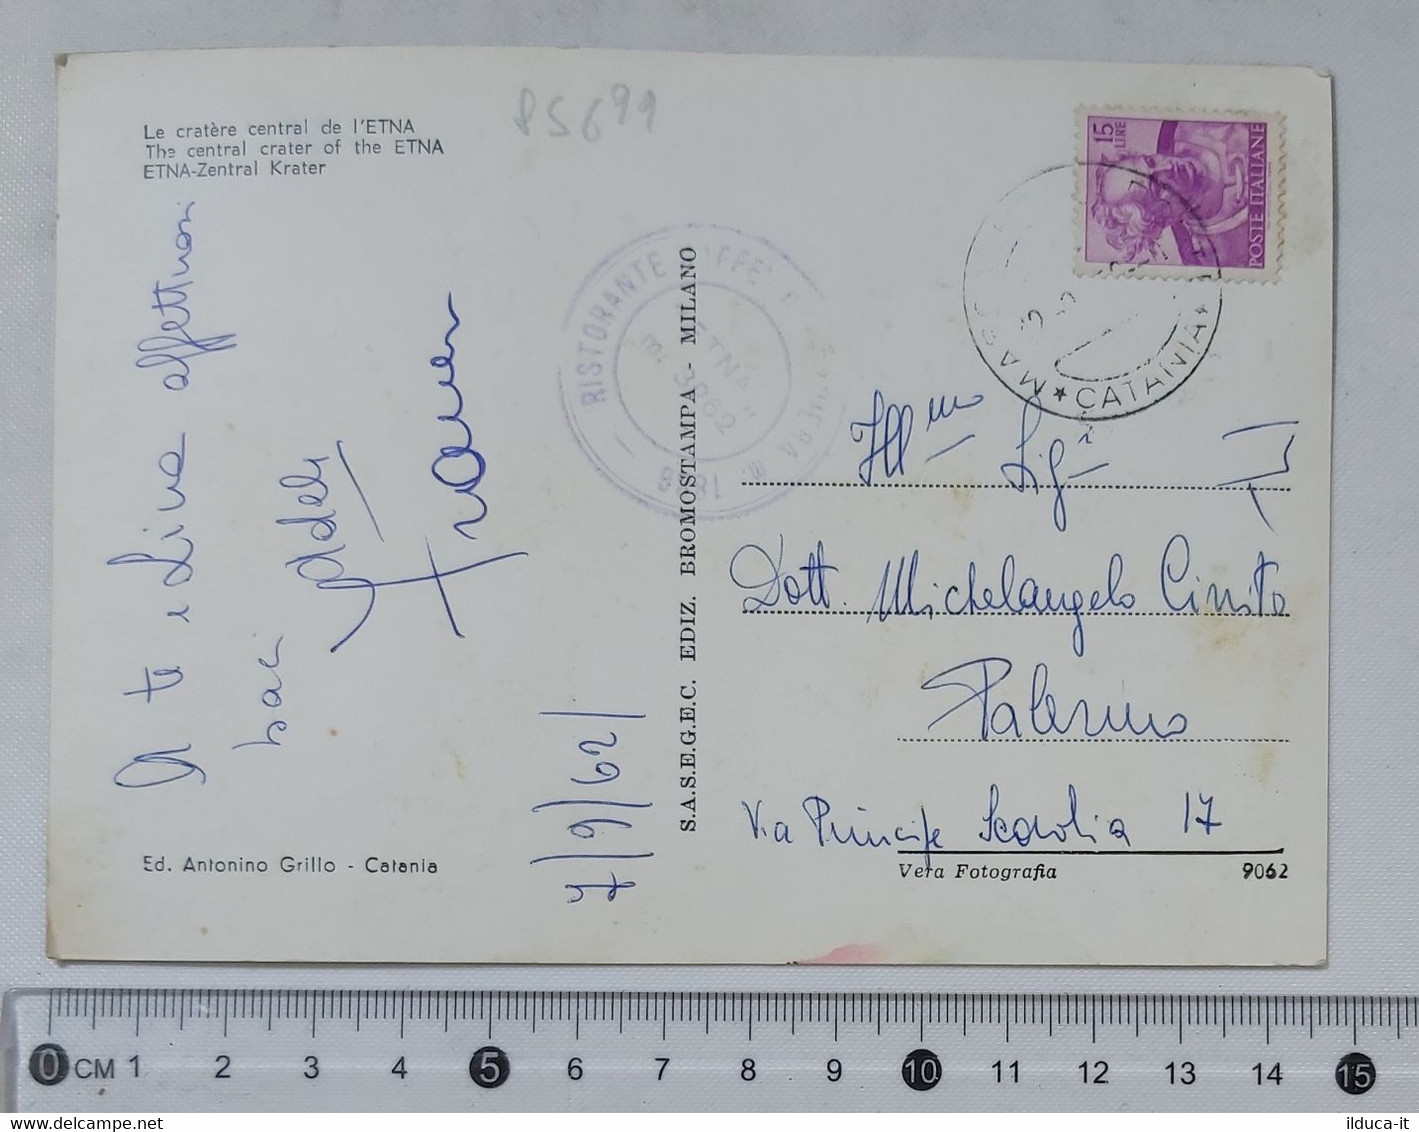 Le cratère central de l'ETNA
The central crater of the ETNA
ETNA-Zentral Krater
PS699
A te e Lina affettuosi
baci
Adele
Franco
7/9/62
Ed. Antonino Grillo - Catania
S.A.S.E.G.E.C. EDIZ. BROMOSTAMPA - MILANO
RISTORANTE
ETNA
15 LIRE
POSTE ITALIANE
CATANIA
Ill.mo Sig.
Dott. Michelangelo
Palermo
Via Principe Scordia 17
Vera Fotografia 9062
0 CM 1 2 3 4 5 6 7 8 9 10 11 12 13 14 15
www.delcampe.net
ilduca-it